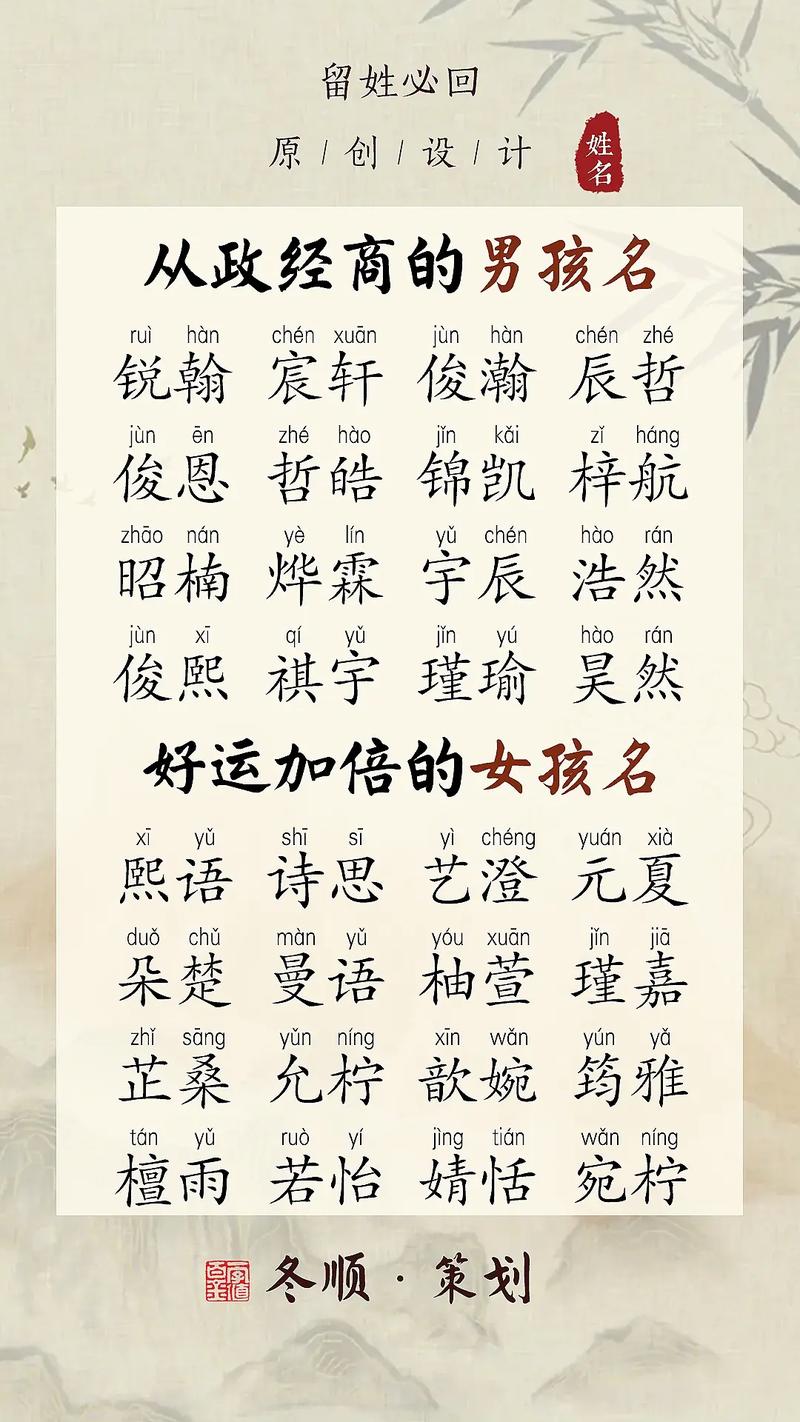 留姓必回
原 / 创 / 设 / 计
姓名
从政经商的男孩名
ruì hàn chén xuān jùn hàn chén zhé
锐翰 宸轩 俊瀚 辰哲
jùn ēn zhé hào jǐn kǎi zǐ háng
俊恩 哲皓 锦凯 梓航
zhāo nán yè lín yǔ chén hào rán
昭楠 烨霖 宇辰 浩然
jùn xī qí yǔ jǐn yú hào rán
俊熙 祺宇 瑾瑜 昊然
好运加倍的女孩名
xī yǔ shī sī yì chéng yuán xià
熙语 诗思 艺澄 元夏
duǒ chǔ màn yǔ yóu xuān jǐn jiā
朵楚 曼语 柚萱 瑾嘉
zhǐ sāng yǔn níng xīn wǎn yún yǎ
芷桑 允柠 歆婉 筠雅
tán yǔ ruò yí jìng tián wǎn níng
檀雨 若怡 婧恬 宛柠
冬顺 · 策划